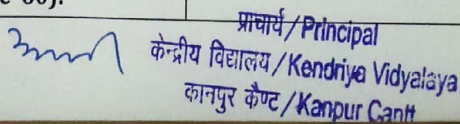 प्राचार्य/Principal
केन्द्रीय विद्यालय/Kendriya Vidyalaya
कानपुर कैण्ट/Kanpur Cantt